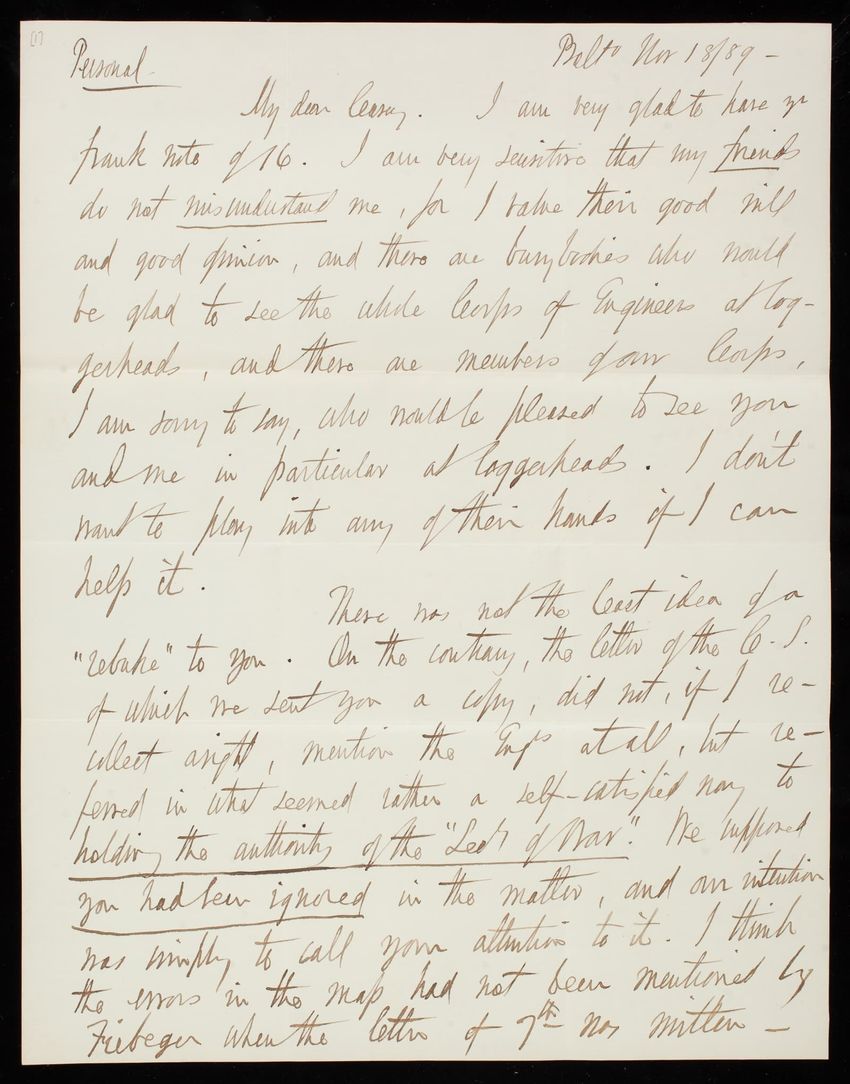 [1]
Personal
Balto Nov 18/89 -
My dear Casey. I am very glad to have yr
frank note of 16. I am very sensitive that my friends
do not misunderstand me, for I value their good will
and good opinion, and there are busybodies who would
be glad to see the whole Corps of Engineers at log-
gerheads, and there are members of our Corps,
I am sorry to say, who would be pleased to see you
and me in particular at loggerheads. I don't
want to play into any of their hands if I can
help it.
There was not the least idea of a
"rebuke" to you. On the contrary, the letter of the C. S.
of which we sent you a copy, did not, if I re-
collect aright, mention the Engrs at all, but re-
ferred in what seemed rather a self-satisfied way to
holding the authority of the "Secy of War". We supposed
you had been ignored in the matter, and our intention
was simply to call your attention to it. I think
the errors in the map had not been mentioned by
Fiebeger when the letter of 7th was written -